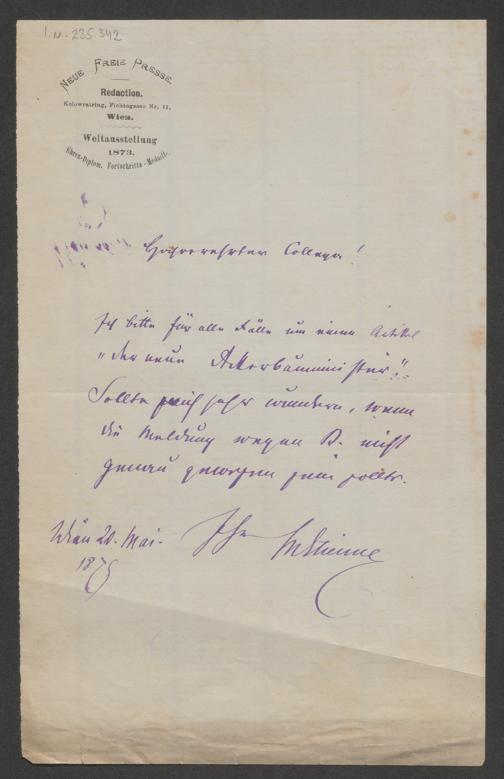 I.N. 235.342
NEUE FREIE PRESSE.
Redaction.
Kolowratring, Fichtegasse Nr. 11,
Wien.
Weltausstellung
1873.
Ehren-Diplom. Fortschritts-Medaille.
Hochverehrter College!
Ich bitte für alle Fälle um einen Artikel
"der neue Ackerbauminister".
Sollte mich sehr wundern, wenn
die Meldung wegen B. nicht
genau gewesen sein sollte.
Wien 20. Mai.
Ihr MEtienne
1875